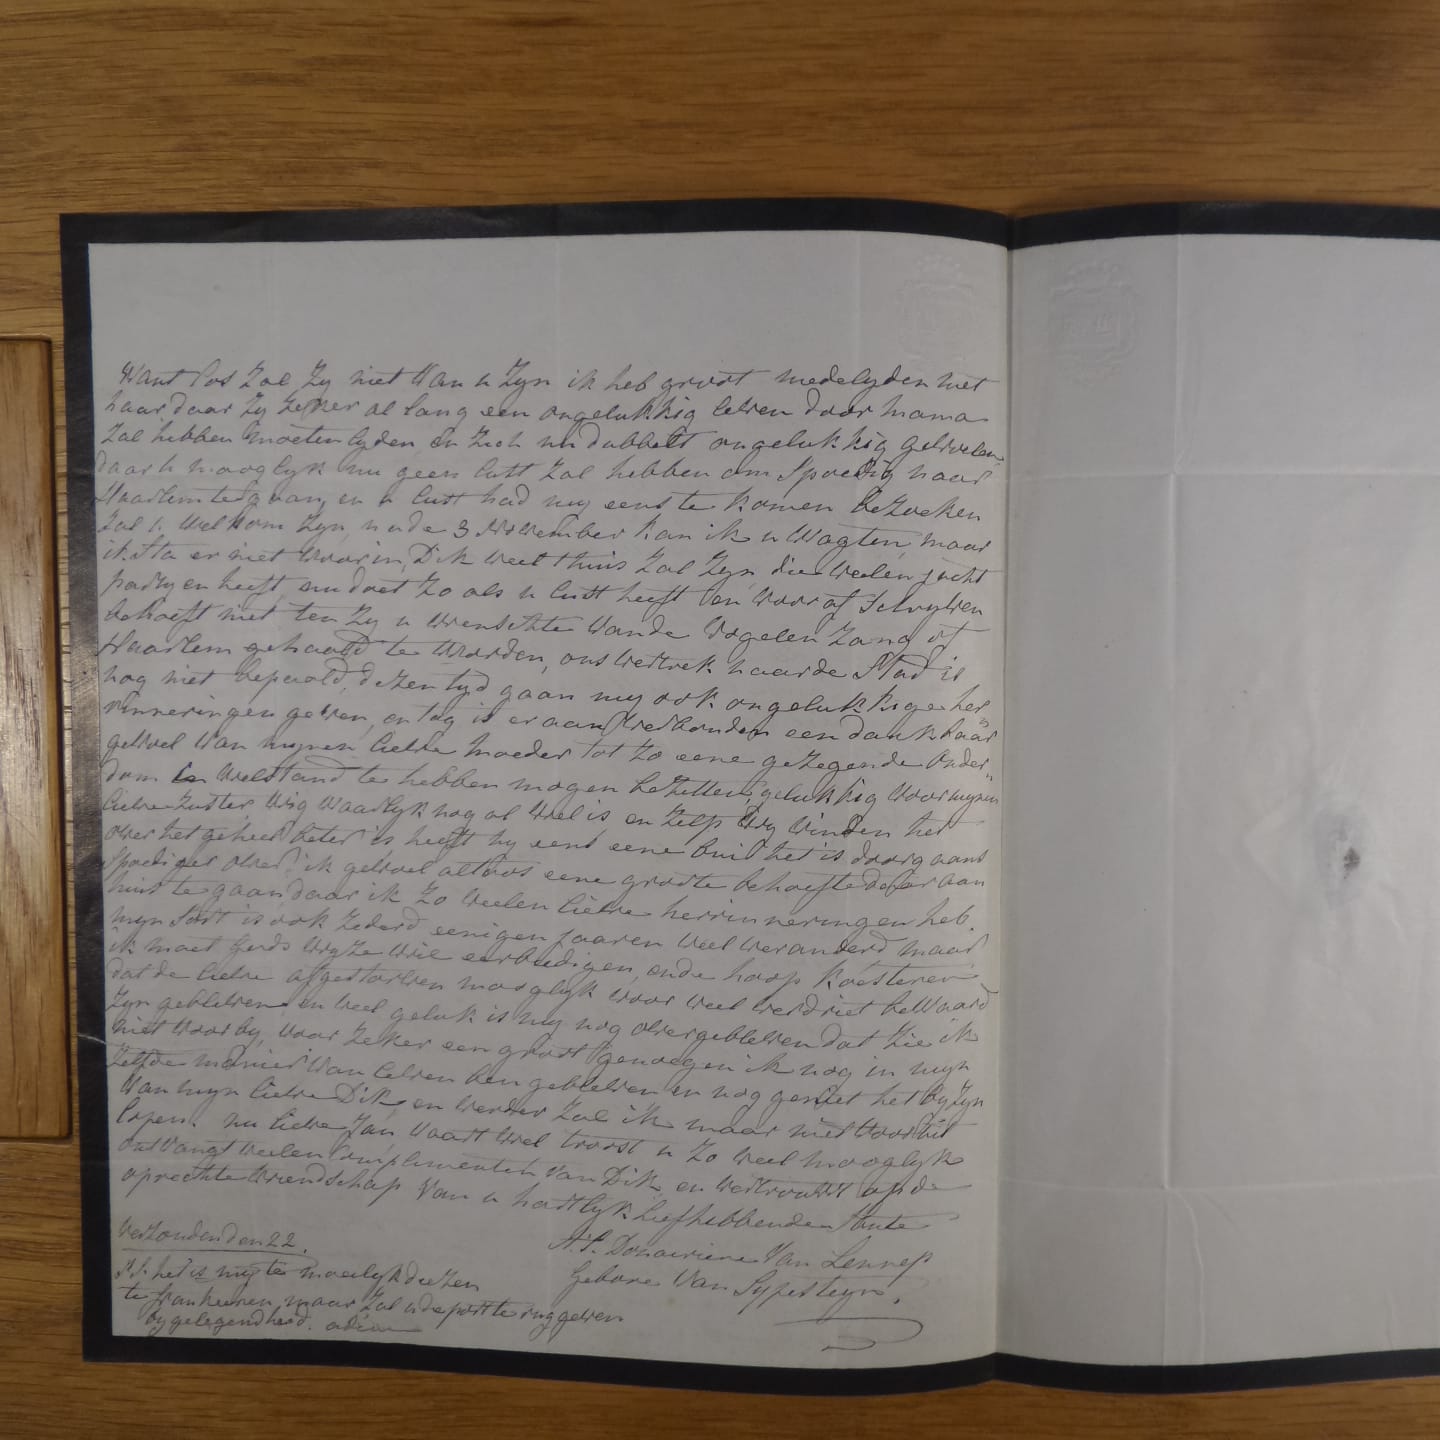 Want los zal zy niet van u zyn ik heb groot medelyden met
haar daar zy zeker al lang een ongelukkig leven door mama
zal hebben moeten lyden en zich nu dubbelt ongelukkig gevoelen,
daar u mooglyk nu geen lust zal hebben om spoedig naar
Haarlem te gaan, en u lust had my eens te komen bezoeken
zal u welkom zyn, na de 3 November kan ik u wagten, maar
ik sta er niet voor in, Dik veel thuis zal zyn, die veelen jacht
partyen heeft, enn doet zo als u lust heeft en vooraf schryven
behoeft niet ten zy u wenschte van de Vogelenzang of
Haarlem gehaald te worden, ons vertrek naar de Stad is
nog niet bepaald, dezen tyd gaan my ook ongelukkige her„
rinneringen geven, en tog is er aan verbonden een dankbaar
gevoel van mynen lieve Moeder tot zo eene gezegende ouder„
dom in welstand te hebben mogen bezitten, gelukkig voor mynen
lieve zuster, Wig waarlyk nog al wel is, en zelfs wy vinden het
over het geheel beter is heeft hy eens eene bui het is doorgaans
spoediger over, ik gevoel altoos eene groote behoefte daar aan
huis te gaan, daar ik zo veelen lieve herrinneringen heb,
myn lott is ook zederd eenigen jaaren veel veranderd maar
ik moet Gods wyze wil eerbiedigen, en de hoop koesteren
dat de lieve afgestorven mooglyk voor veel verdriet bewaard
zyn gebleven en veel geluk is my nog overgebleven dat zie ik
niet voorby, voor zeker een groot genoegen ik nog in myn
zelfde manier van leven ben gebleven en nog geniet het byzyn
van myn lieve Dik, en verder zal ik maar niet vooruit
lopen. nu lieve Jan, vaart wel troost u zo veel mooglyk
ontvangt veelen complimenten van Dik, en vertrouwt op de
oprechte vriendschap van u hartlyk liefhebbenden Tante
A. S. Douairiere Van Lennep
Gebore Van Sypesteyn.
Verzonden den 22.
P.S. het is my te moeilyk deezen
te frankeeren, maar zal u de port terug geven
by gelegendheid. adieu